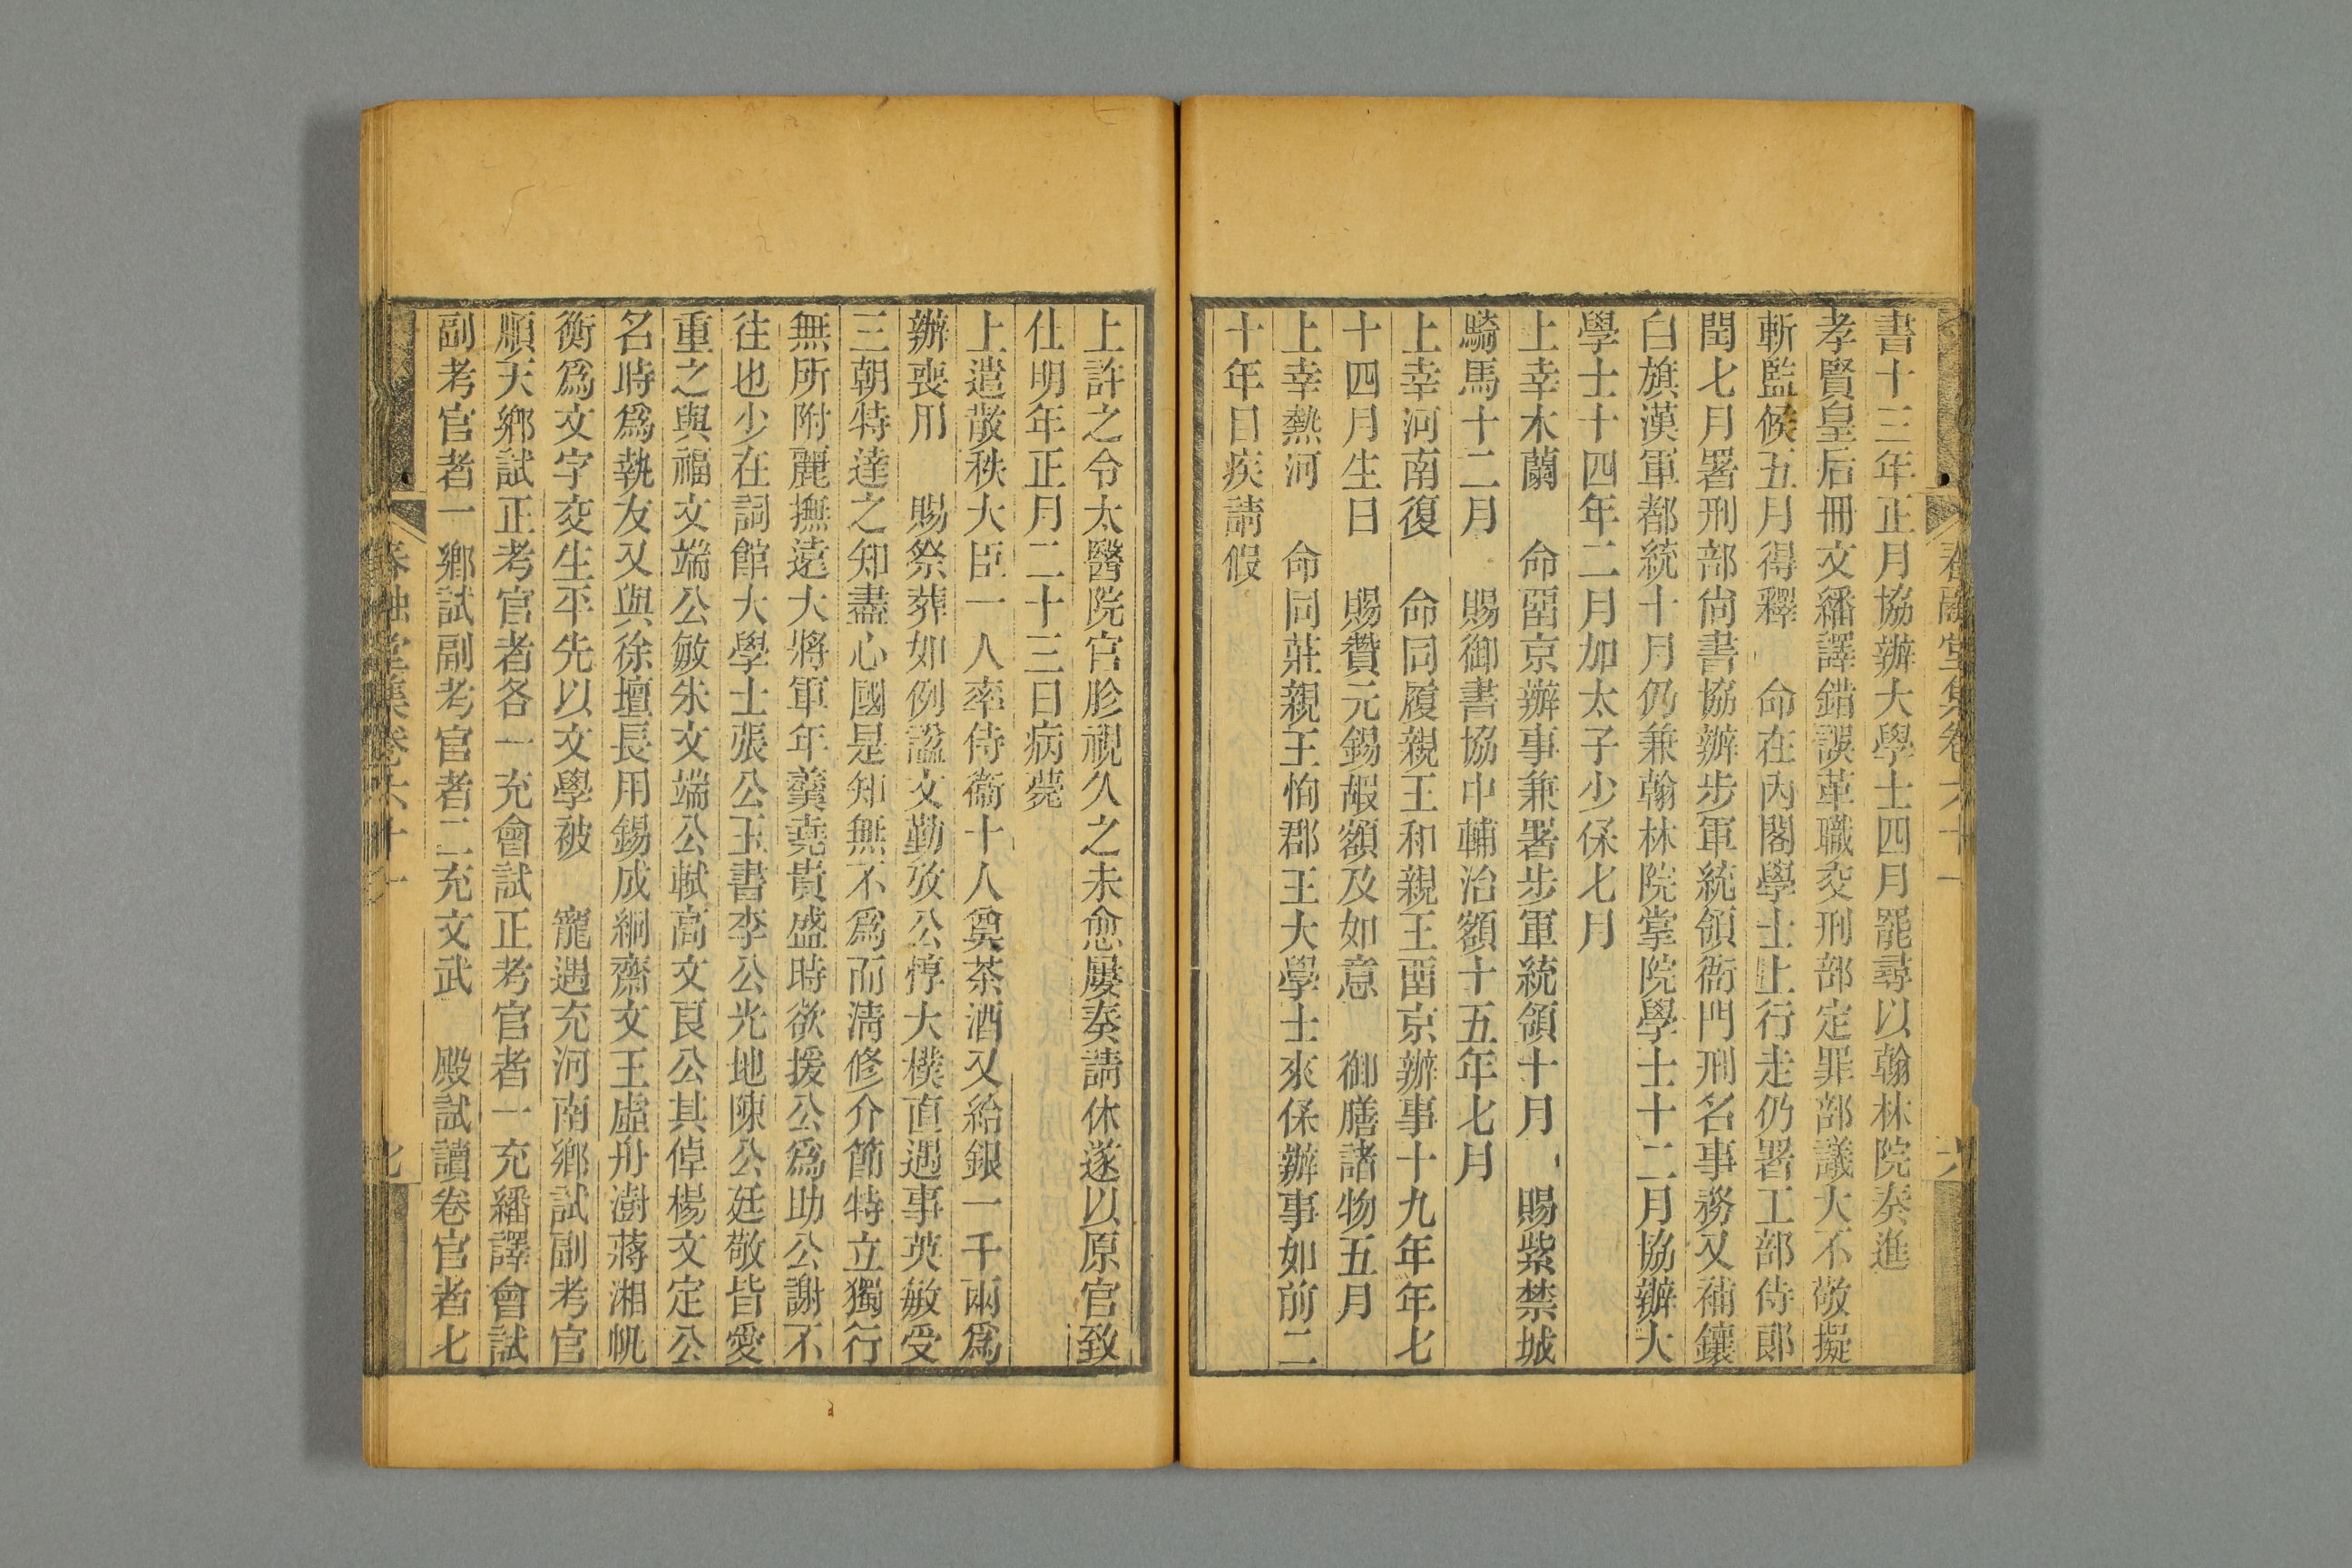 春融堂集卷六十一
六
書十三年正月協辦大學士四月罷尋以翰林院奏進
孝賢皇后冊文繙譯錯誤革職交刑部定罪部議大不敬擬
斬監候五月得釋　命在內閣學士上行走仍署工部侍郎
閏七月署刑部尙書協辦步軍統領衙門刑名事務又補鑲
白旗漢軍都統十月仍兼翰林院掌院學士十二月協辦大
學士十四年二月加太子少保七月
上幸木蘭　命畱京辦事兼署步軍統領十月　賜紫禁城
騎馬十二月　賜御書協中輔治額十五年七月
上幸河南復　命同履親王和親王畱京辦事十九年年七
十四月生日　賜贊元錫嘏額及如意　御膳諸物五月
上幸熱河　命同莊親王恂郡王大學士來保辦事如前二
十年日疾請假
上許之令太醫院官胗視久之未愈屢奏請休遂以原官致
仕明年正月二十三日病薨
上遣散秩大臣一人率侍衞十人奠茶酒又給銀一千兩爲
辦喪用　賜祭葬如例諡文勤攷公惇大樸直遇事英敏受
三朝特達之知盡心國是知無不爲而淸修介節特立獨行
無所附麗撫遠大將軍年羹堯貴盛時欲援公爲助公謝不
往也少在詞館大學士張公玉書李公光地陳公廷敬皆愛
重之與福文端公敏朱文端公軾高文良公其倬楊文定公
名時爲執友又與徐壇長用錫成絅齋文王虛舟澍蔣湘帆
衡爲文字交生平先以文學被　寵遇充河南鄉試副考官
順天鄉試正考官者各一充會試正考官者一充繙譯會試
副考官者一鄉試副考官者二充文武　殿試讀卷官者七
春融堂集卷六十一
七